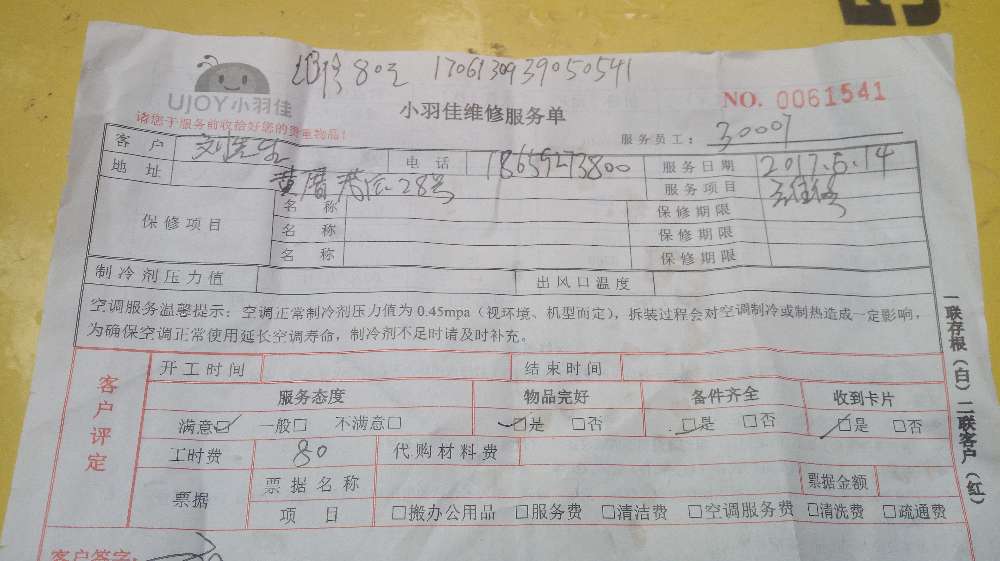 80元 1706130939050541
UJOY小羽佳
小羽佳维修服务单
NO. 0061541
请您于服务前收拾好您的贵重物品!
服务员工: 30007
客 户 电 话 18659273800 服务日期 2017.6.14
地 址 28号 服务项目
保修项目
名 称 保修期限
名 称 保修期限
名 称 保修期限
制冷剂压力值 出风口温度
空调服务温馨提示:空调正常制冷剂压力值为 0.45mpa(视环境、机型而定),拆装过程会对空调制冷或制热造成一定影响,
为确保空调正常使用延长空调寿命,制冷剂不足时请及时补充。
客户评定
开工时间 结束时间
服务态度 物品完好 备件齐全 收到卡片
满意☑ 一般□ 不满意□ ☑是 □否 ☑是 □否 ☑是 □否
工时费 80 代购材料费
票据 票据名称 票据金额
项 目 □搬办公用品 □服务费 □清洁费 □空调服务费 □清洗费 □疏通费
客户签字:
一联存根(白)二联客户(红)